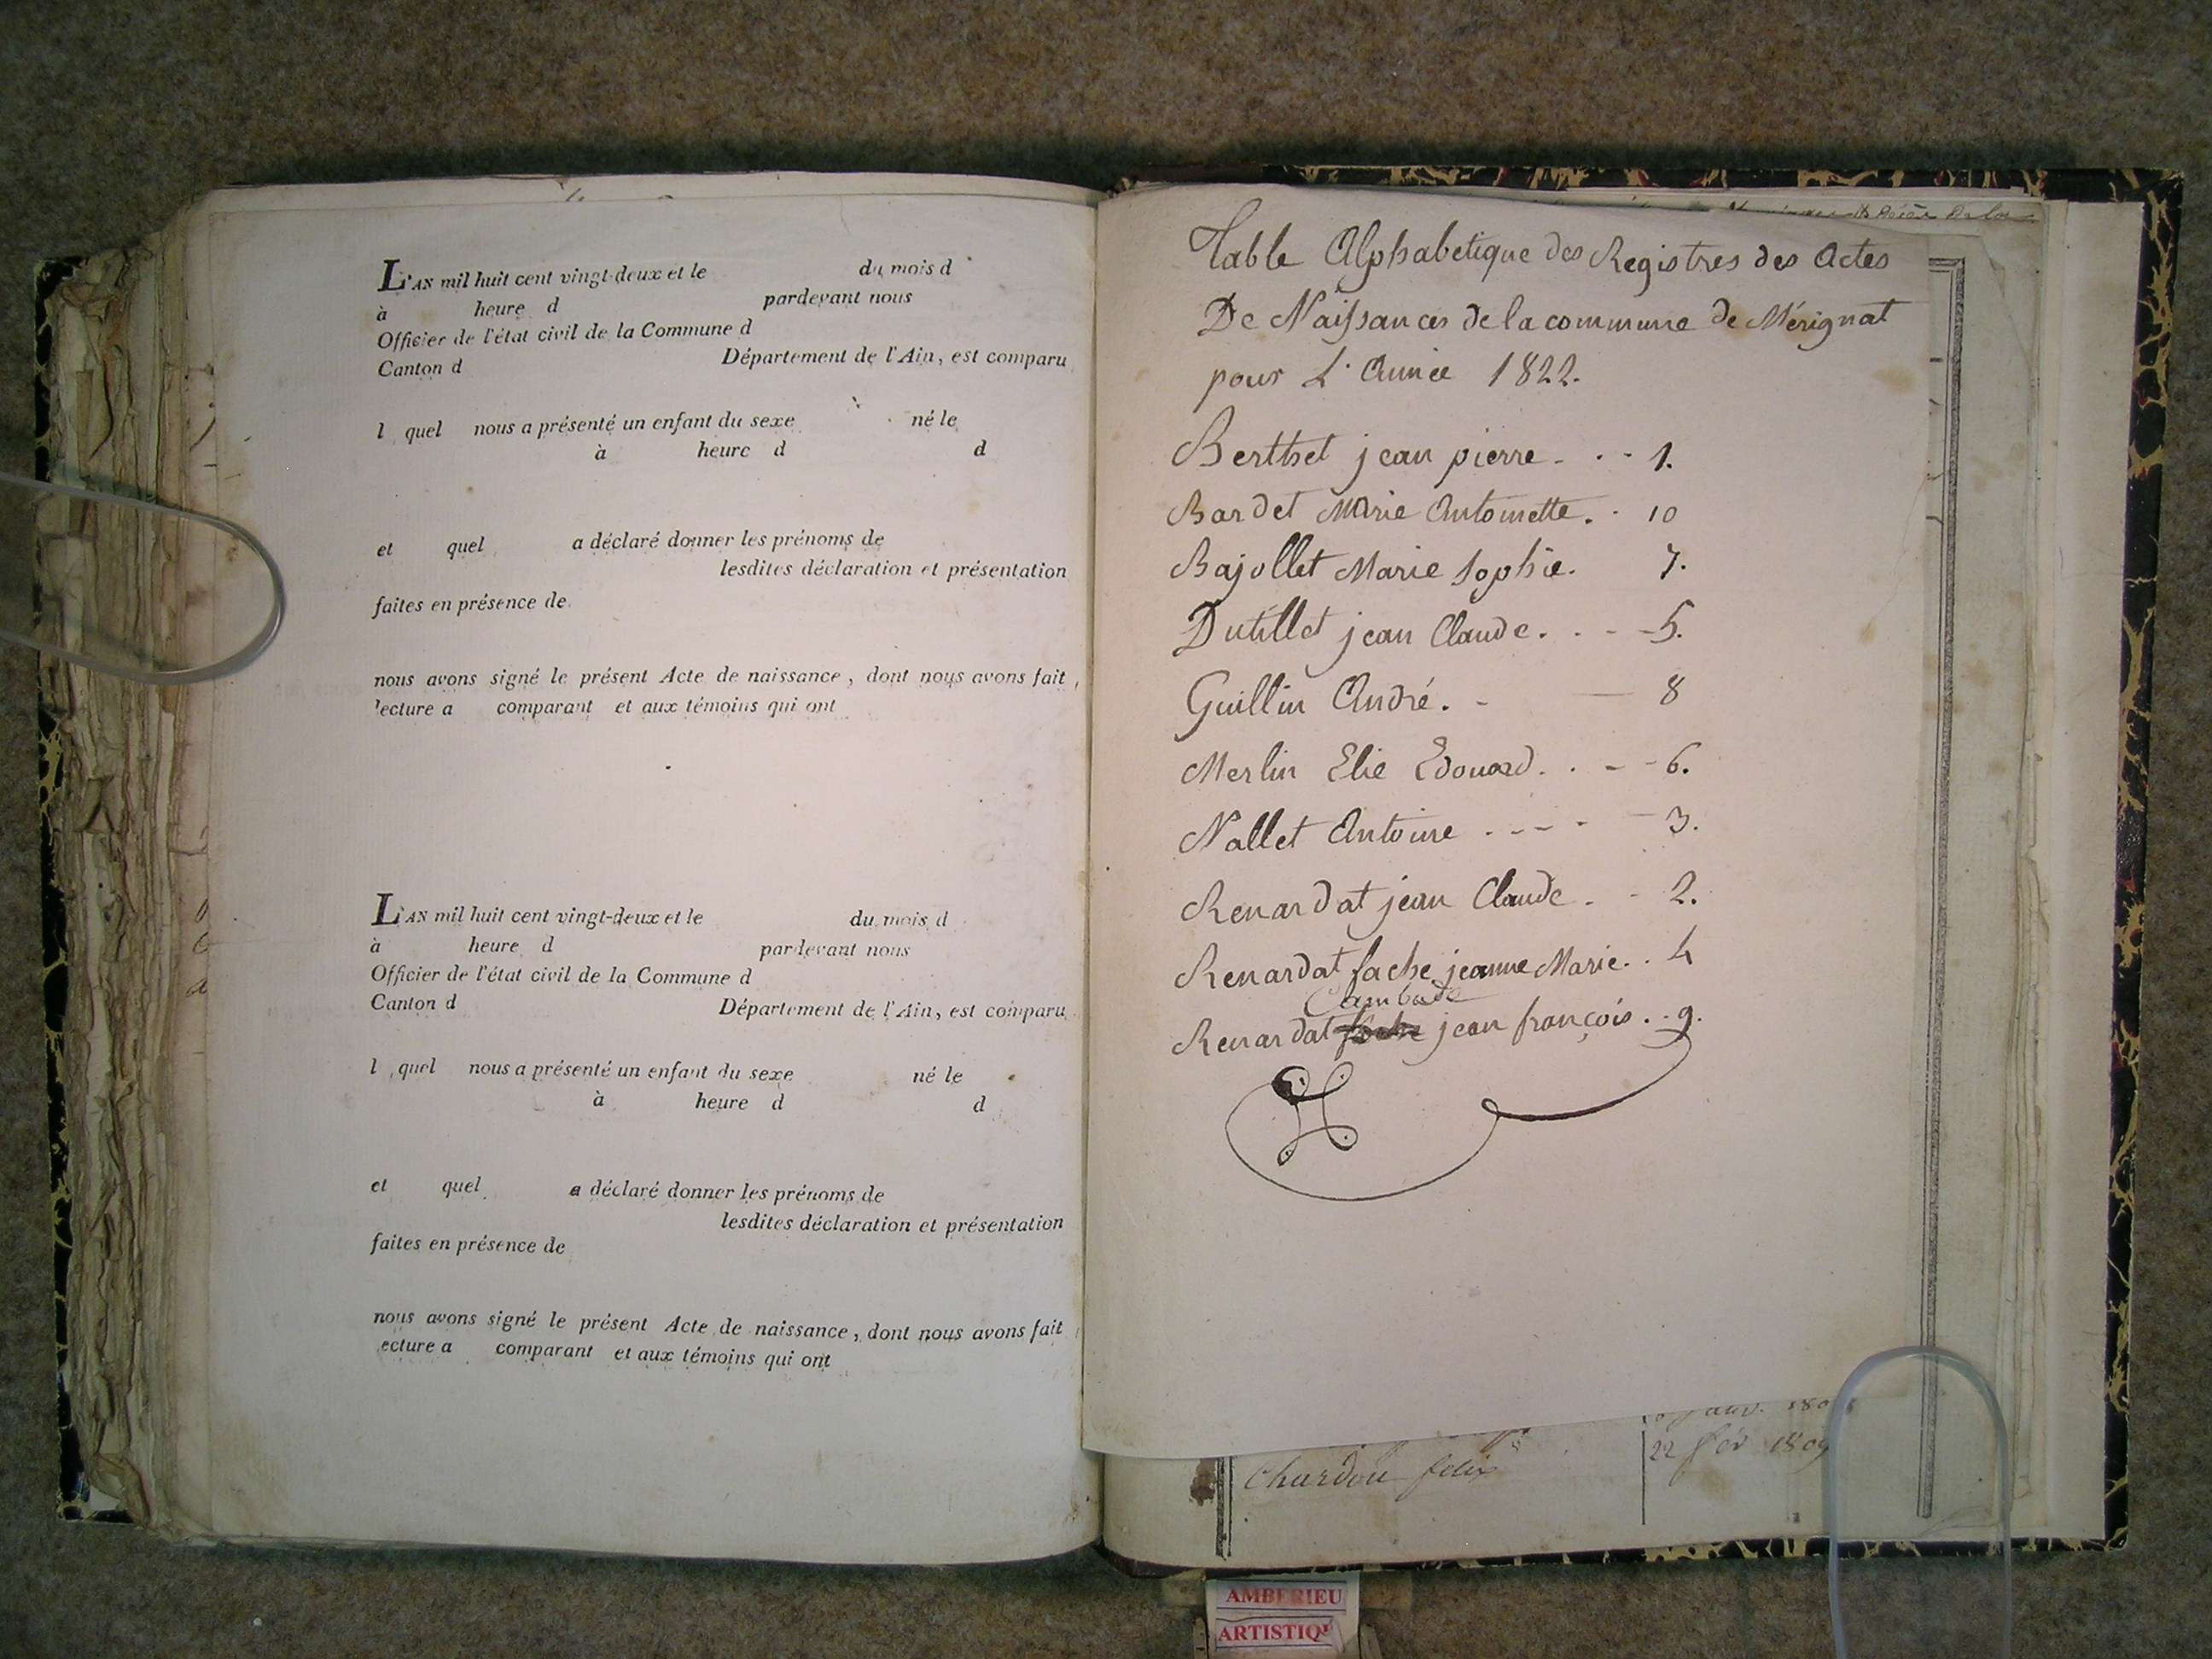 L'AN mil huit cent vingt-deux et le du mois d
à heure d pardevant nous
Officier de l'état civil de la Commune d
Canton d Département de l'Ain, est comparu
l quel nous a présenté un enfant du sexe né le
à heure d d
et quel a déclaré donner les prénoms de
lesdites déclaration et présentation
faites en présence de
nous avons signé le présent Acte de naissance, dont nous avons fait
lecture a comparant et aux témoins qui ont
L'AN mil huit cent vingt-deux et le du mois d
à heure d pardevant nous
Officier de l'état civil de la Commune d
Canton d Département de l'Ain, est comparu
l quel nous a présenté un enfant du sexe né le
à heure d d
et quel a déclaré donner les prénoms de
lesdites déclaration et présentation
faites en présence de
nous avons signé le présent Acte de naissance, dont nous avons fait
ecture a comparant et aux témoins qui ont
Table Alphabetique des Registres des Actes
De Naissances de la commune de Mérignat
pour L'Année 1822.
Berthet jean pierre - . - 1.
Bardet Marie Antoinette . . 10
Bajollet Marie Sophie. 7.
Dutillet jean Claude . . - - 5.
Guillin André . - — 8
Merlin Elie Edouard . . - - 6.
Nallet Antoine . - - - - 3.
Renardat jean Claude . - 2.
Renardat fache jeanne Marie . . 4
Cambade
Renardat fache jean françois . . 9.
Chardon felix 22 fév 1809
AMBERIEU
ARTISTIQ